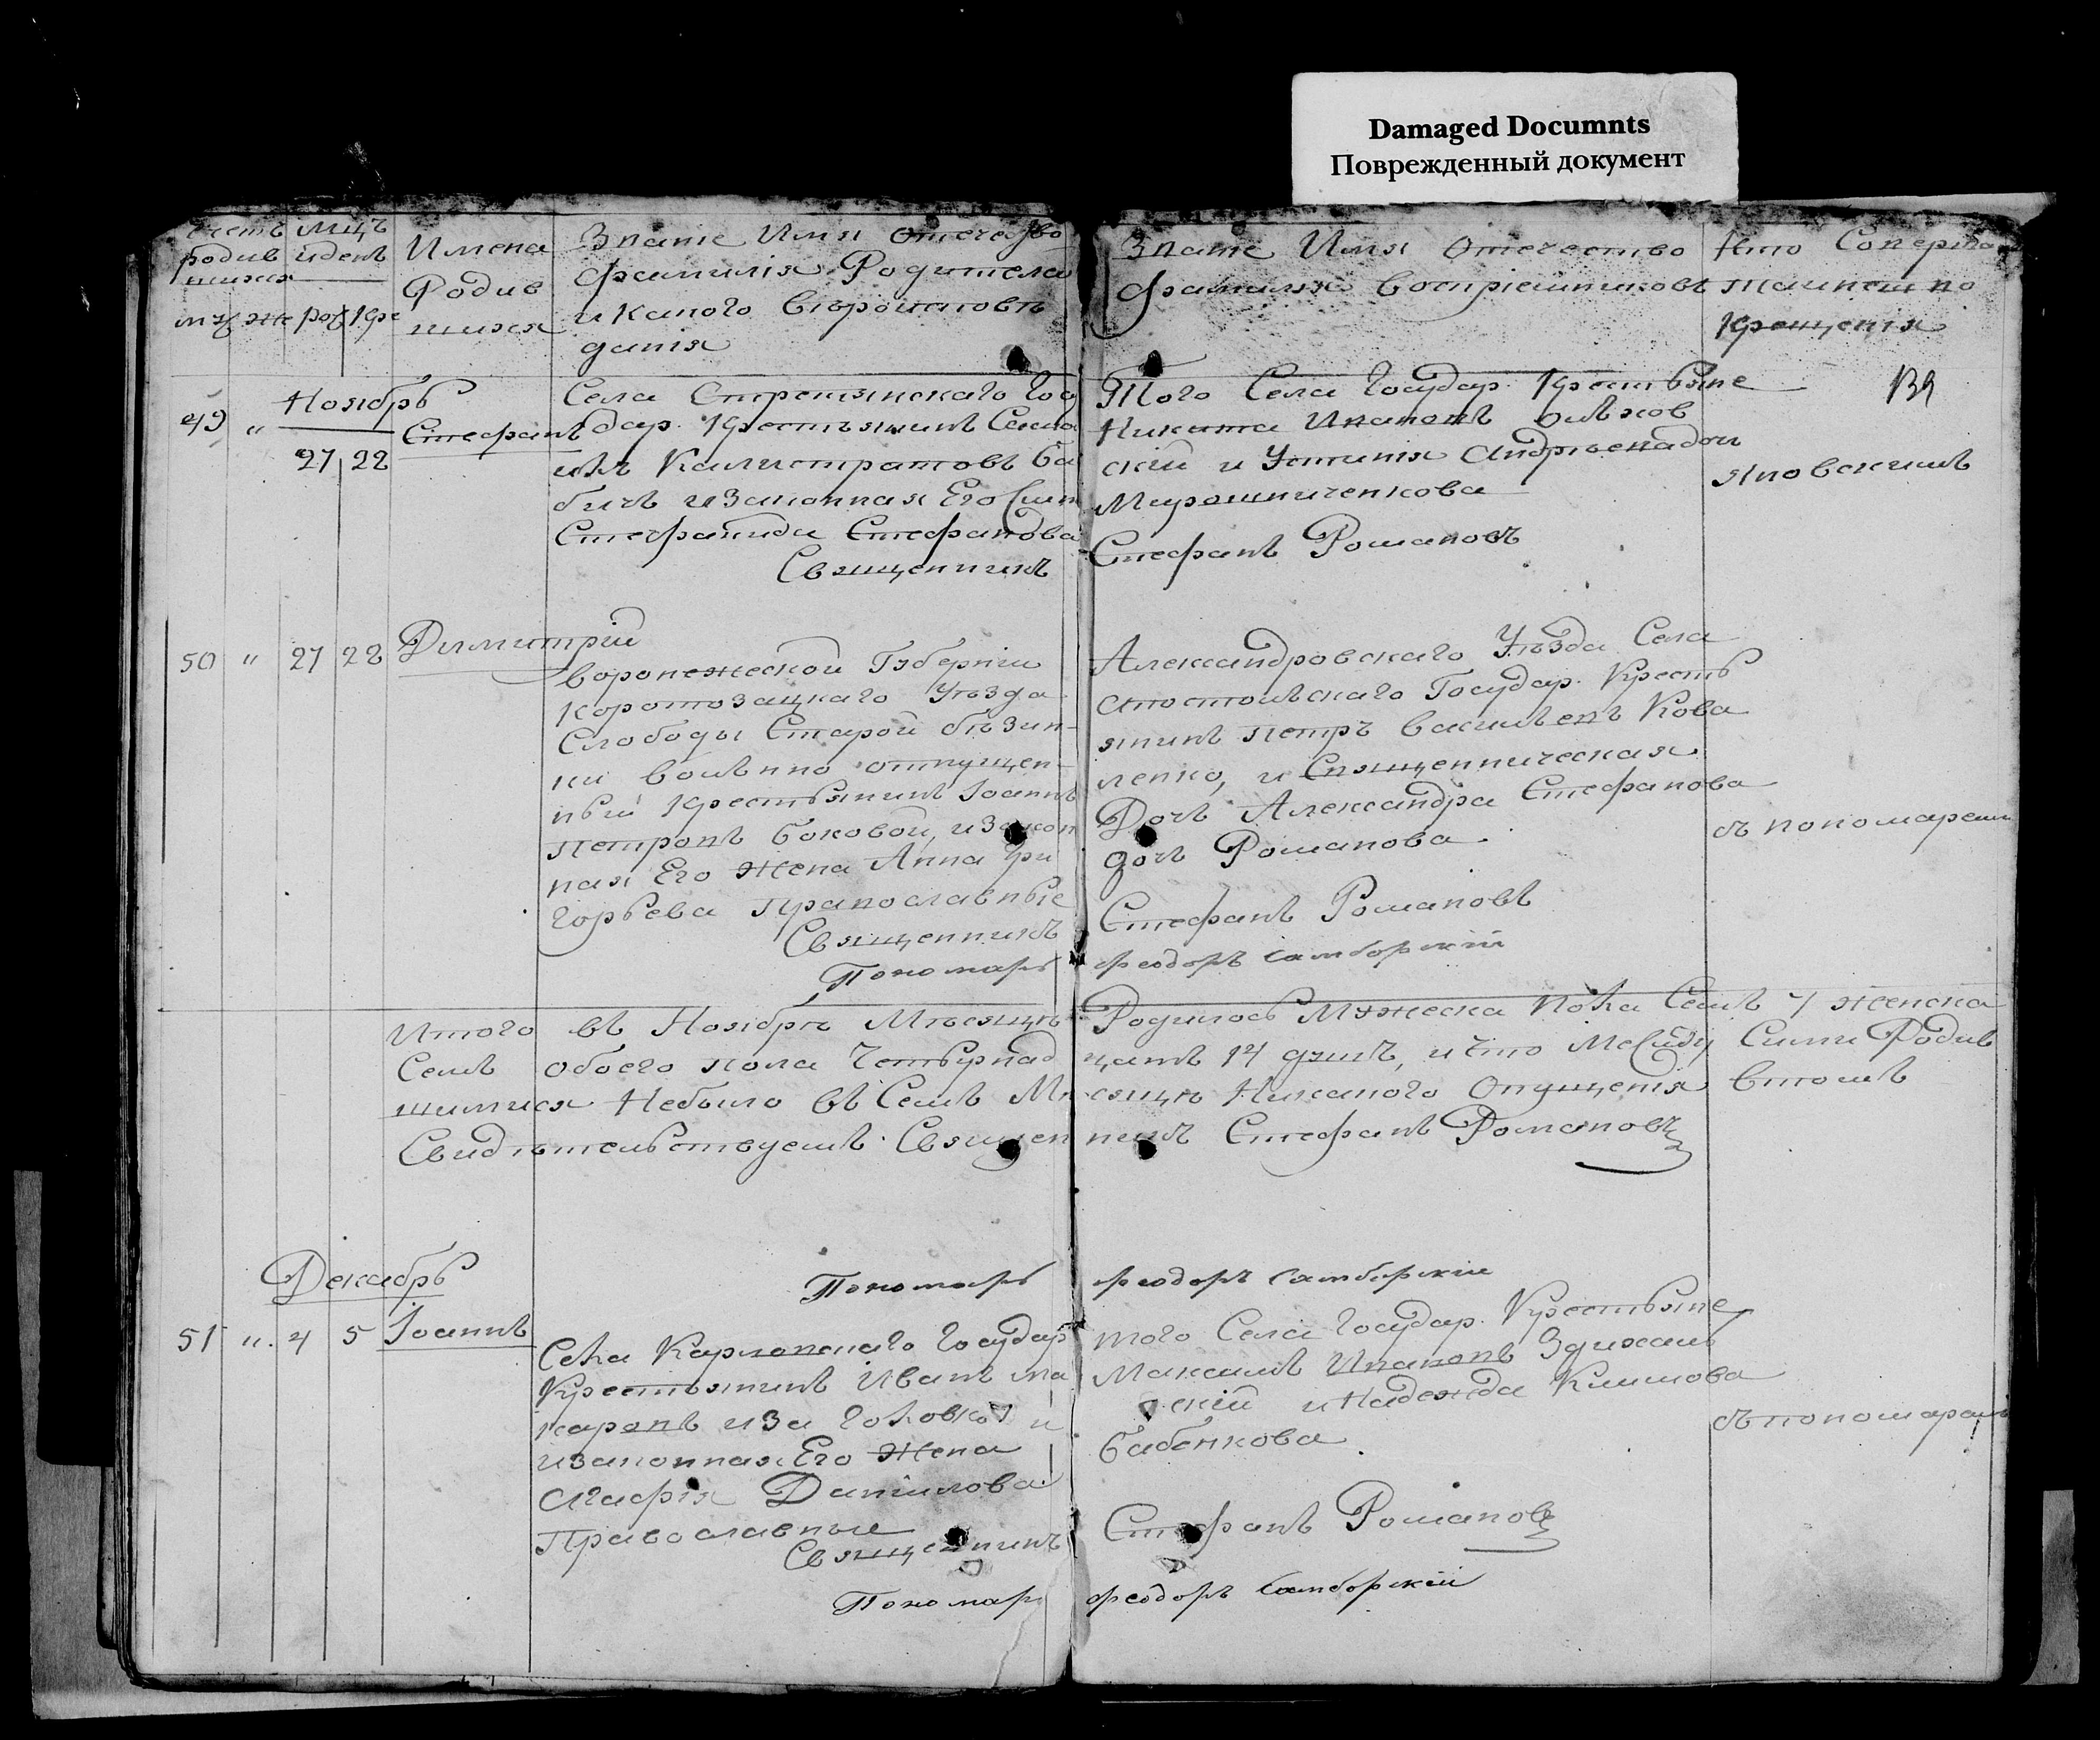 Damaged Documnts
Поврежденный документ
счетъ мцъ
родив идень
шихся
муж же рож кре
Имена
Родив
шихся
Званіе Имя отечество
фамилія Родителей
и какого вѣроисповѣ
данія
Званіе Имя Отечество
фамилія воспріемниковъ
Кто Соверша
таинство
крещенія
49 "
Ноябрь
27 22
Стефанъ
Села Стретинскаго Гос
удар. Крестьянинъ
Каллистратовъ Ба
бичъ и законная Его
Стефанида Стефанова
Священникъ
Того Села Государ. Крестьяне
Никита Ивановъ
скій и Устинія Андрѣева доч
Мирошниченкова
Стефанъ Романовъ
яновскимъ
50 " 27 22 Димитрій
Воронежской Губерніи
Коротояцкаго Уѣзда
Слободы Старой
ки вольнно отпущен-
ный Крестьянинъ Іоаннъ
Петровъ Боковой, и закон
ная Его Жена Анна Гри
горьева Православные
Священникъ
Пономарь
Александровскаго Уѣзда Села
Государ. Кресть
янинъ Петръ Васильевъ Кова
ленко, и Священническая
Дочь Александра Стефанова
дочь Романова.
Стефанъ Романовъ
Феодоръ Самборскій
съ пономаремъ
Итого въ Ноябрѣ Мѣсяцѣ Родилось Мужеска пола Семь 7 женска
Семь обоего пола Четырнад цать 14 душъ, и что Между Сими Родив
шимися Небыло въ Семъ Мѣ сяцѣ Никакого Опущенія втомъ
Свидѣтельствуемъ Священ никъ Стефанъ Романовъ
Декабрь
Пономарь Феодоръ Самборскій
51 ". 4 5 Іоаннъ
Села Карловскаго Государ
Крестьянинъ Иванъ Ма
каровъ
и законная Его Жена
Агафія Данилова
Православные
Священникъ
Пономарь
того Села Государ. Крестьяне,
Максимъ Ивановъ
скій и Надежда Климова
Бабенкова
Стефанъ Романовъ
Феодоръ Самборскій
съ пономаремъ